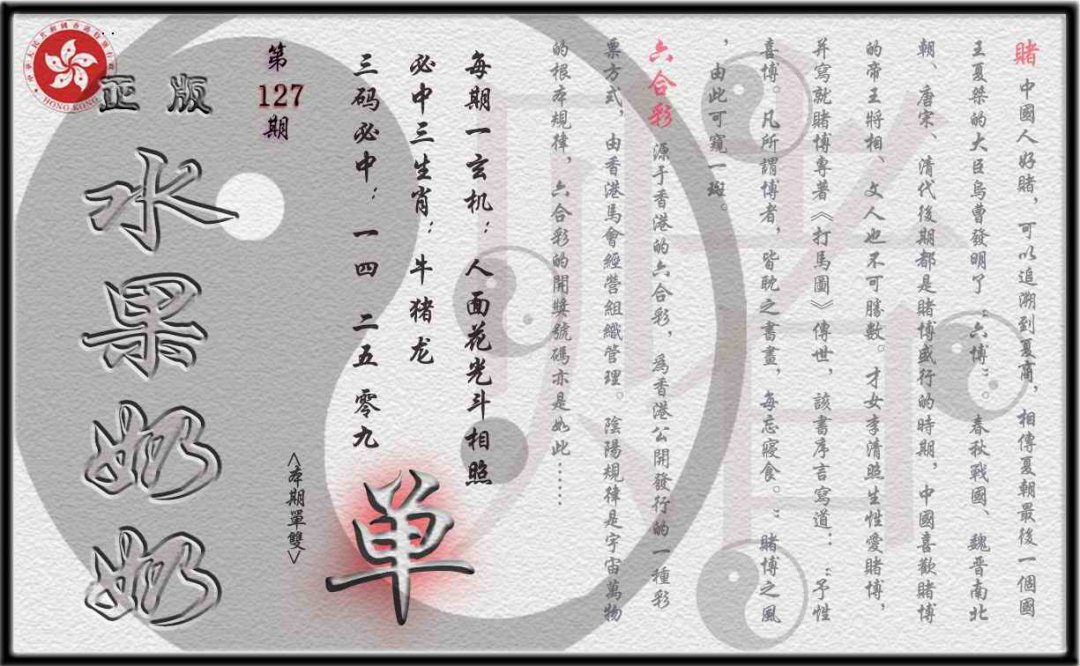 賭 中國人好賭，可以追溯到夏商，相傳夏朝最後一個國
王夏桀的大臣烏曹發明了“六博”。春秋戰國、魏晉南北
朝、唐宋、清代後期都是賭博盛行的時期，中國喜歡賭博
的帝王將相、文人也不可勝數。才女李清照生性愛賭博，
并寫就賭博專著《打馬圖》傳世，該書序言寫道：“予性
喜博。凡所謂博者，皆耽之書晝，每忘寢食。”賭博之風
，由此可窺一斑。
六合彩 源于香港的六合彩，爲香港公開發行的一種彩
票方式，由香港馬會經營組織管理。陰陽規律是宇宙萬物
的根本規律，六合彩的開獎號碼亦是如此……
每期一玄机：人面花光斗相照
必中三生肖：牛猪龙
三码必中：一四 二五 零九
单
<本期單雙>
第127期
正版
水果奶奶
HONG KONG